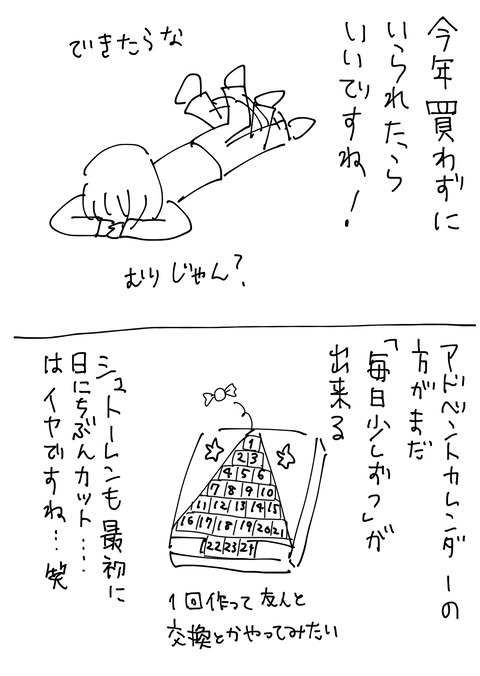 今年買わずに
いられたら
いいですね！
できたらな
むりじゃん？
アドベントカレンダーの
方がまだ
「毎日少しずつ」が
出来る
1
2 3
4 5 6
7 8 9 10
11 12 13 14 15
16 17 18 19 20 21
22 23 24
1回作って友人と
交換とかやってみたい
シュトーレンも最初に
日にちぶんカット……
はイヤですね…笑